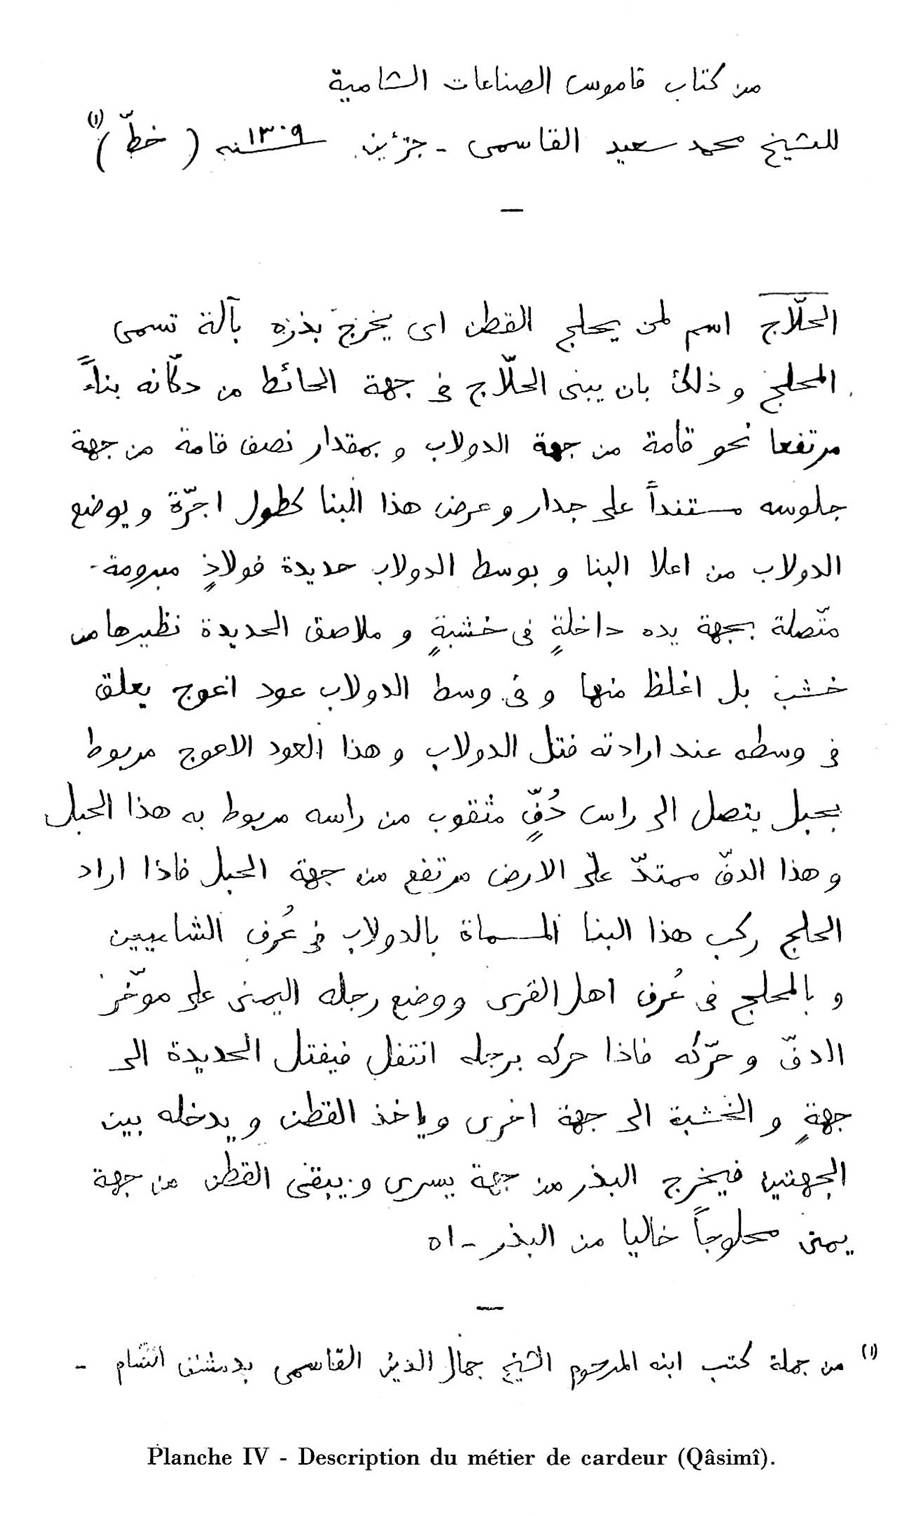 من كتاب قاموس الصناعات الشامية
للشيخ محمد سعيد القاسمى - جزئين سنه ١٣٠٩ ( خطّ ) (١)
الحلّاج اسم لمن يحلج القطن اى يخرج بذره بآلة تسمى
المحلج و ذلك بان يبنى الحلّاج فى جهة الحائط من دكّانه بناءً
مرتفعا نحو قامة من جهة الدولاب و بمقدار نصف قامة من جهة
جلوسه مستنداً على جدار و عرض هذا البنا كطول اجرّة و يوضع
الدولاب من اعلا البنا و بوسط الدولاب حديدة فولاذٍ مبرومة -
متّصلة بجهة يده داخلةٍ فى خشبةٍ و ملاصق الحديدة نظيرها من
خشب بل اغلظ منها و فى وسط الدولاب عود اعوج يعلق
فى وسطه عند ارادته فتل الدولاب و هذا العود الاعوج مربوط
بحبل يتصل الى راس دُفٍّ مثقوب من راسه مربوط به هذا الحبل
و هذا الدفّ ممتدّ على الارض مرتفع من جهة الحبل فاذا اراد
الحلج ركب هذا البنا المسماة بالدولاب فى عُرف الشاميين
و بالمحلج فى عُرف اهل القرى ووضع رجله اليمنى على مؤخّر
الدفّ و حرّكه فاذا حركه برجله انتفل فيفتل الحديدة الى
جهةٍ و الخشبة الى جهة اخرى وياخذ القطن و يدخله بين
الجهتين فيخرج البذر من جهة يسرى و يبقى القطن من جهة
يمنى محلوجاً خاليا من البذر - اه
(١) من جملة كتب ابنه المرحوم الشيخ جمال الدين القاسمى بدمشق الشام -
Planche IV - Description du métier de cardeur (Qâsimî).